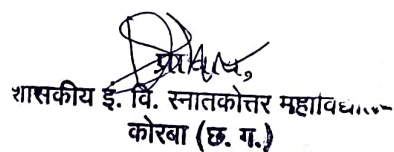 प्राचार्य,
शासकीय इं. वि. स्नातकोत्तर महाविद्या....
कोरबा (छ. ग.)